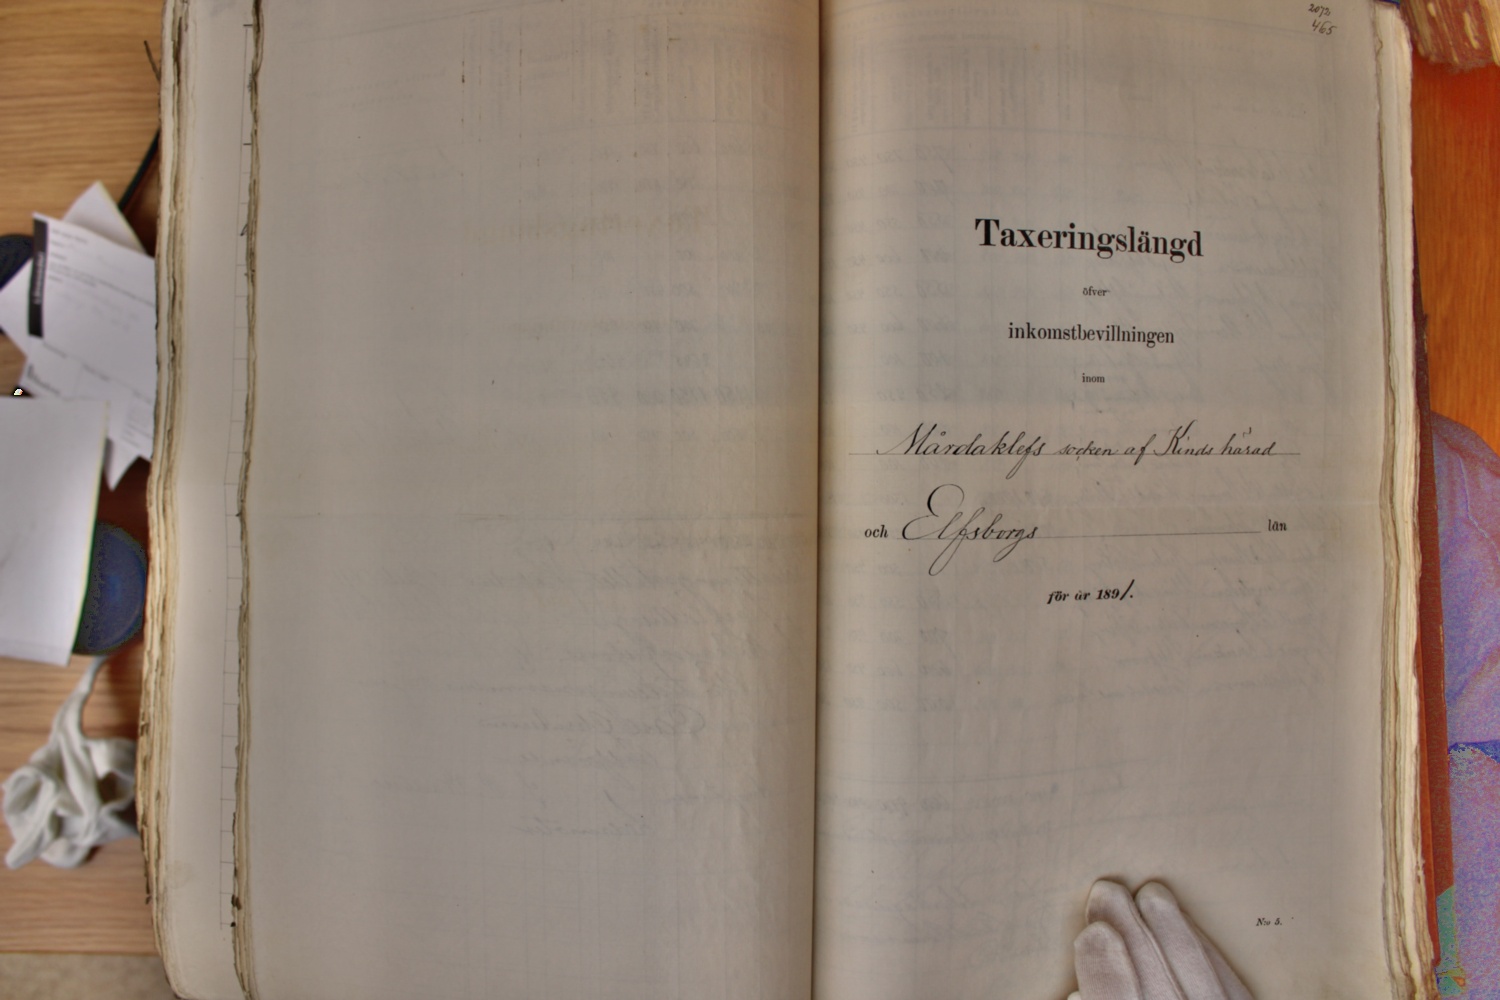 2072
465
Taxeringslängd
öfver
inkomstbevillningen
inom
Mårdaklefs socken af Kinds härad
och Elfsborgs län
för år 1891.
N:o 5.